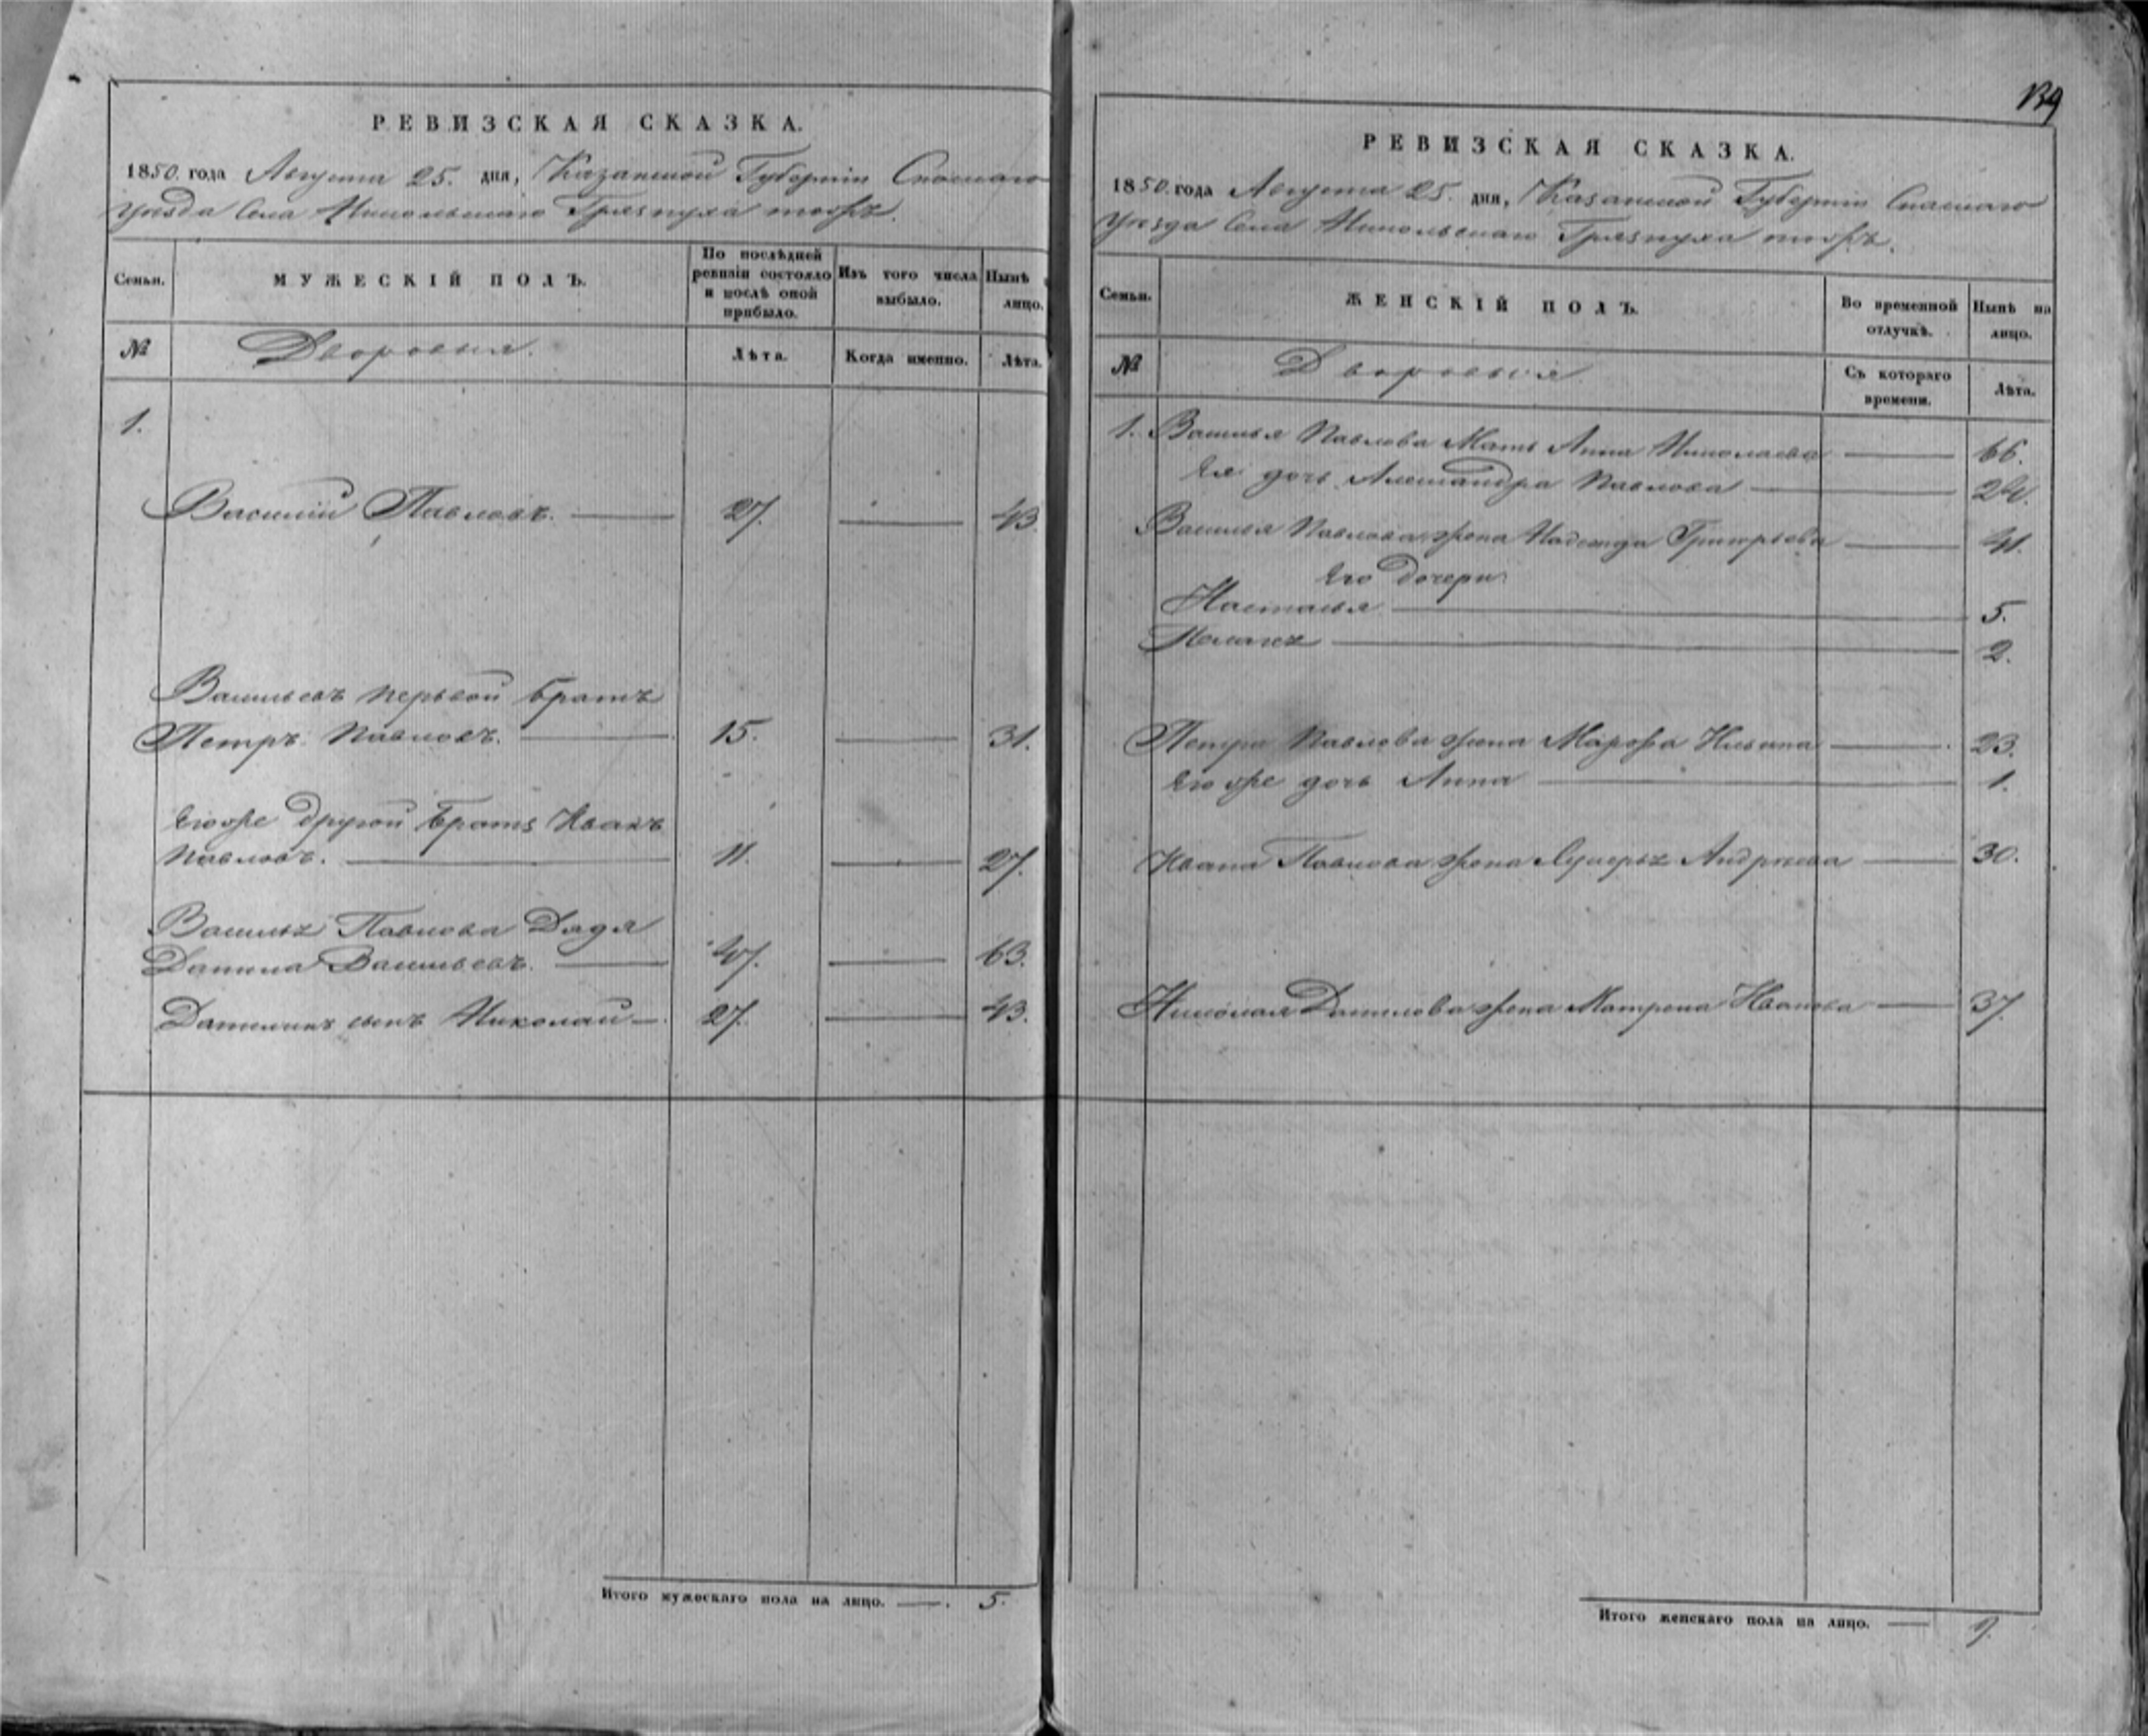 РЕВИЗСКАЯ СКАЗКА.
1850 года Августа 25. дня, Казанской Губернiи Спаскаго
уѣзда Села Никольскаго Грязнуха тожъ.
Семьи. МУЖЕСКІЙ ПОЛЪ. По послѣдней ревизіи состояло и послѣ оной прибыло. Изъ того числа выбыло. Нынѣ лицо.
№ Дворовыя. Лѣта. Когда именно. Лѣта.
1.
Василiй Павловъ. — 27. — 43.
Васильевъ первой братъ
Петръ Павловъ. — 15. — 31.
Егоже другой братъ Иванъ
Павловъ. — 11. — 27.
Василья Павлова Дядя
Данила Васильевъ. — 47. — 63.
Данилинъ сынъ Николай — 27. — 43.
Итого мужескаго пола на лицо. — 5.
139
РЕВИЗСКАЯ СКАЗКА.
1850 года Августа 25. дня, Казанской Губернiи Спаскаго
уѣзда Села Никольскаго Грязнуха тожъ.
Семьи. ЖЕНСКІЙ ПОЛЪ. Во временной отлучкѣ. Нынѣ на лицо.
№ Дворовыя Съ котораго времени. Лѣта.
1. Василья Павлова Мать Анна Николаева — 66.
Ея дочь Александра Павлова —
Василья Павлова жена Надежда Григорьева — 41.
Его Дочери
Настасья — 5.
— 2.
Петра Павлова жена Марфа — 23.
Его же дочь Анна — 1.
Ивана Павлова жена Андреева — 30.
Николая Данилова жена Матрена Иванова — 37.
Итого женскаго пола на лицо. — 9.